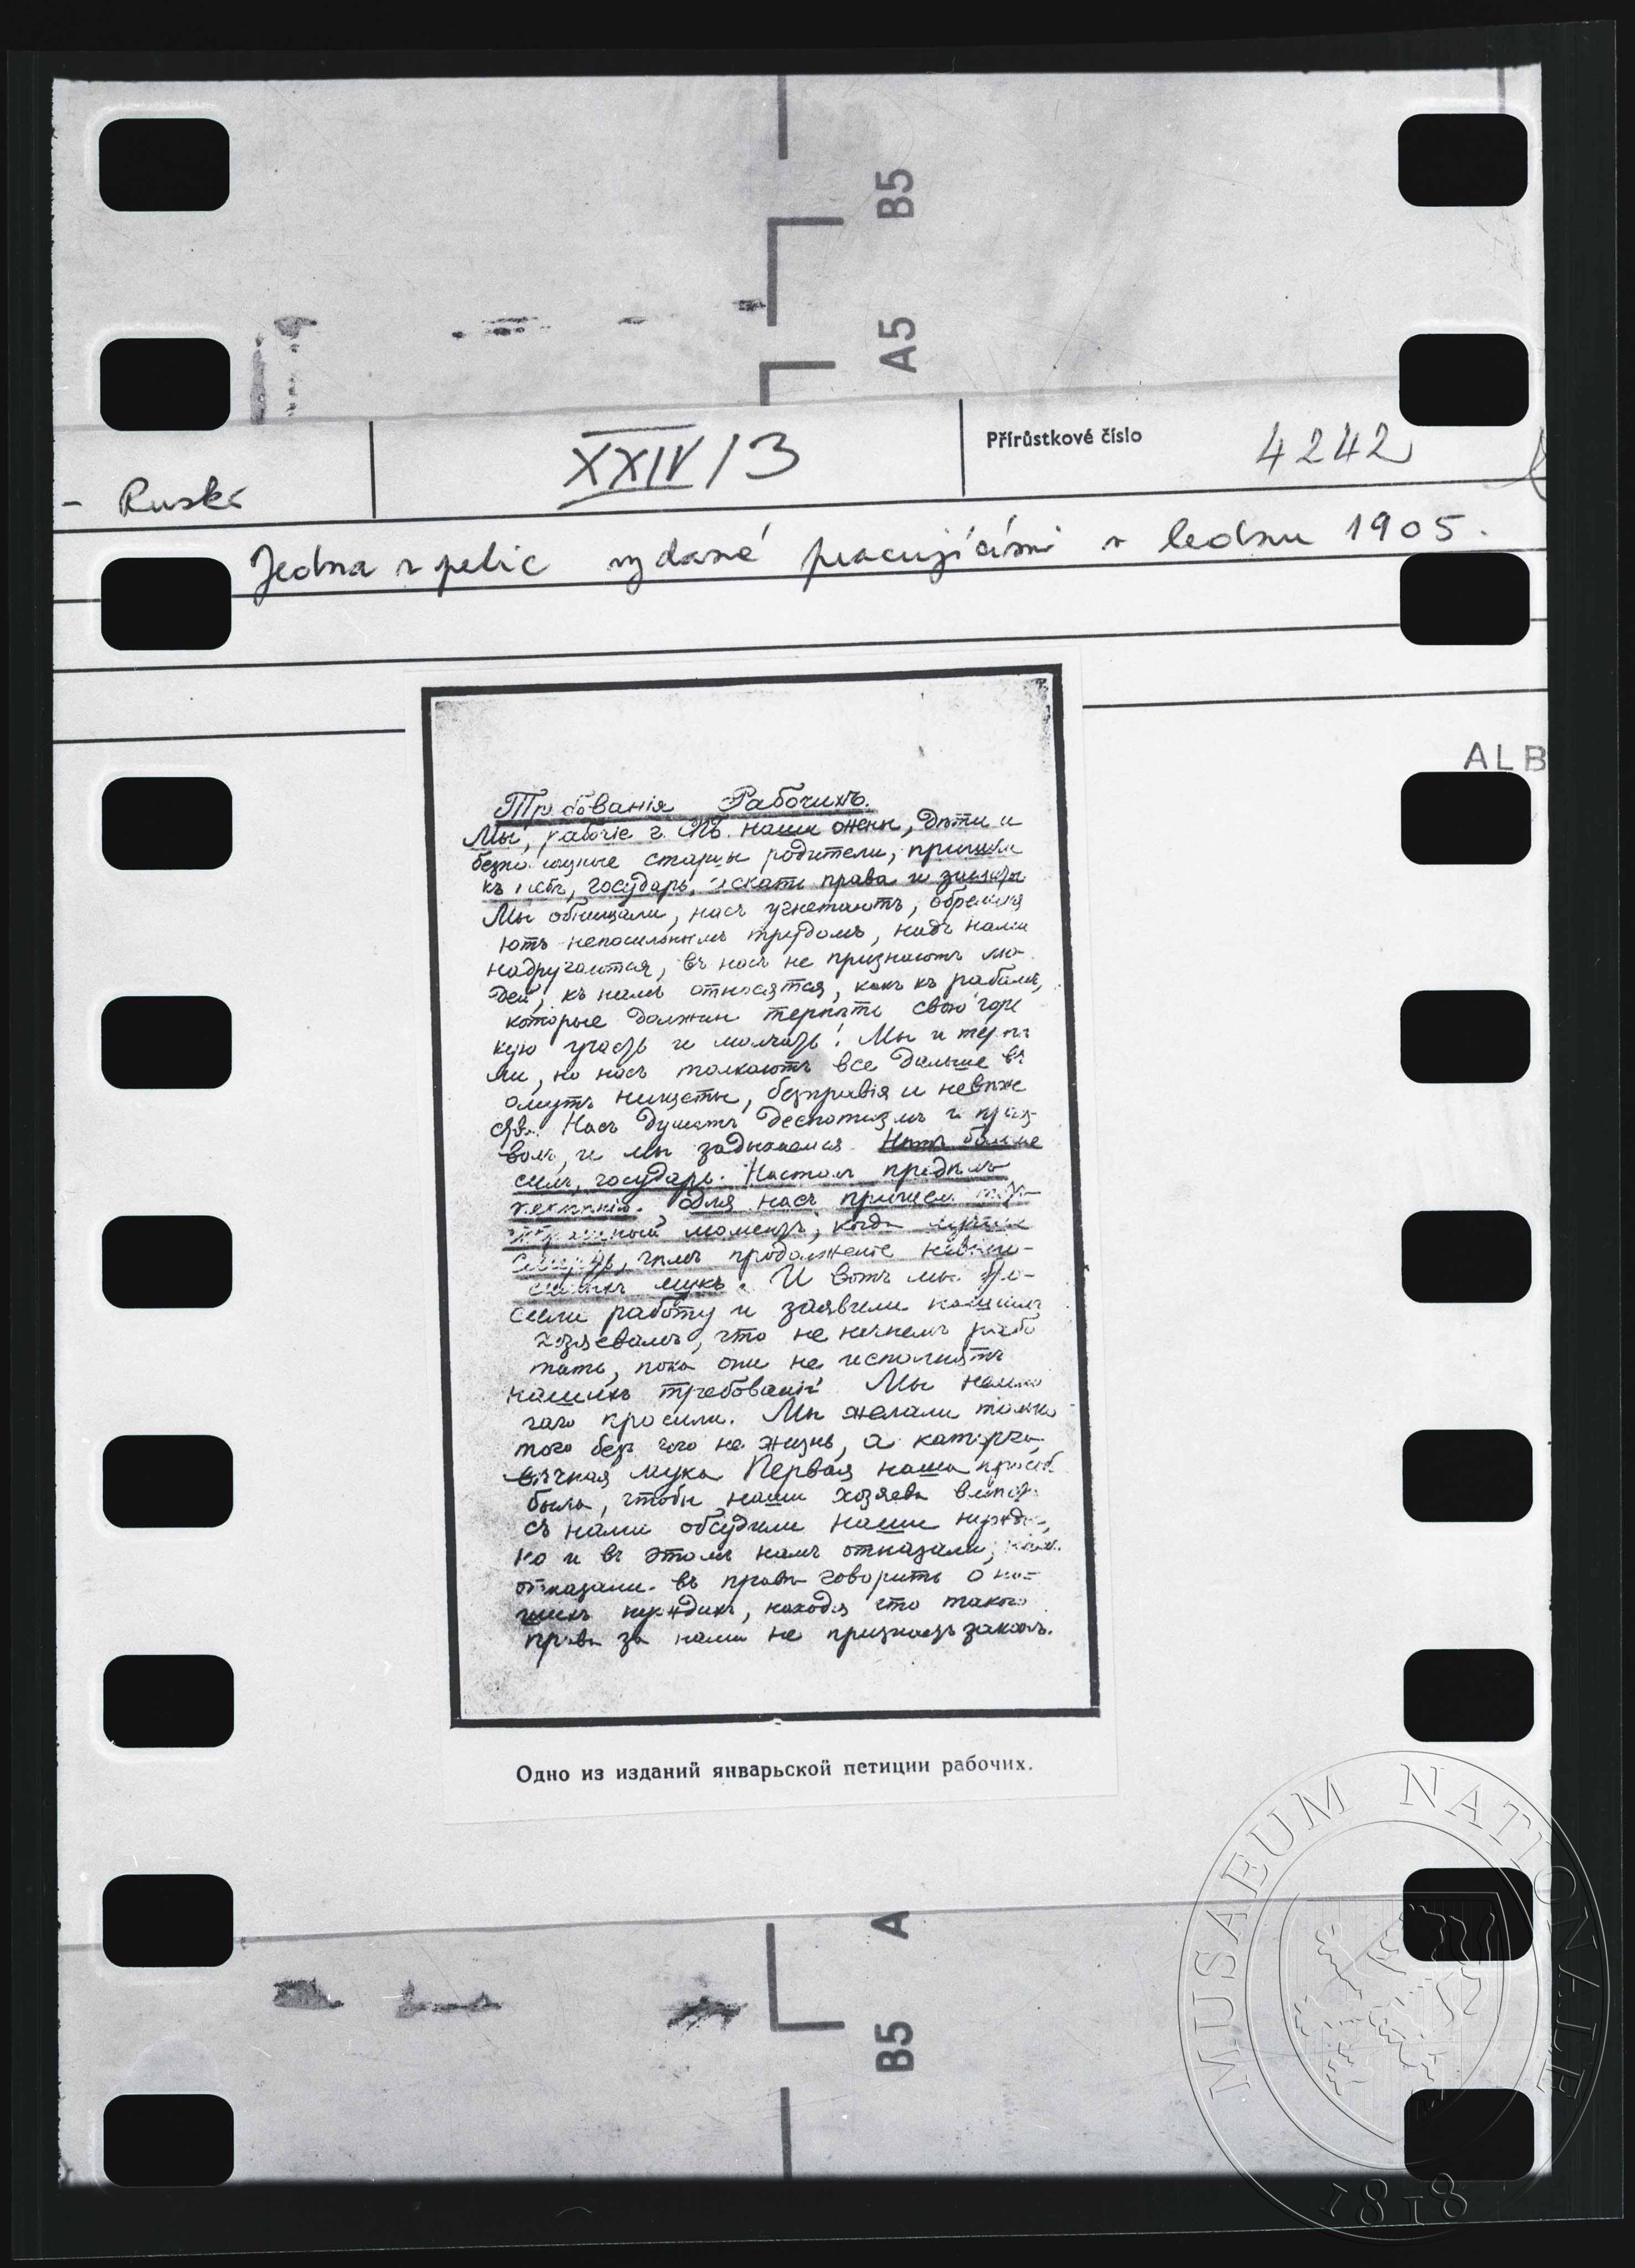 B5
A5
Přírůstkové číslo
4242
XXIV/3
- Ruské
Jedna z petic vydané pracujícími v lednu 1905.
ALB
Требованія Рабочихъ.
Мы, рабочіе г. СПБ. наши жены, дѣти и
старцы родители, пришли
къ тебѣ, государь, искать права и защиты
Мы обнищали, насъ угнетаютъ, обременя
ютъ непосильнымъ трудомъ, надъ нами
надругаются, въ насъ не признаютъ лю-
дей, къ намъ относятся, какъ къ рабамъ,
которые должны терпѣть свою горь
кую участь и молчать! Мы и терпѣ
ли, но насъ толкаютъ все дальше въ
омутъ нищеты, безправія и невѣже
ства. Насъ душатъ деспотизмъ и произ-
волъ, и мы задыхаемся. Нѣтъ больше
силъ, государь. Насталъ предѣлъ
терпѣнію. Для насъ пришелъ тотъ
моментъ, когда лучше
смерть, чѣмъ продолженіе невыно-
мукъ. И вотъ мы бро-
сили работу и заявили нашимъ
хозяевамъ, что не начнемъ рабо
тать, пока они не исполнятъ
нашихъ требованій. Мы немно
гаго просили. Мы желали только
того безъ чего не жизнь, а каторга,
вѣчная мука. Первая наша просьба
была, чтобы наши хозяева вмѣстѣ
съ нами обсудили наши нужды,
но и въ этомъ намъ отказали, намъ
отказали въ правѣ говорить о на-
шихъ нуждахъ, находя что такого
права за нами не признаетъ законъ.
Одно из изданий январьской петиции рабочих.
A
B5
MUSAEUM NATIONALE
1818